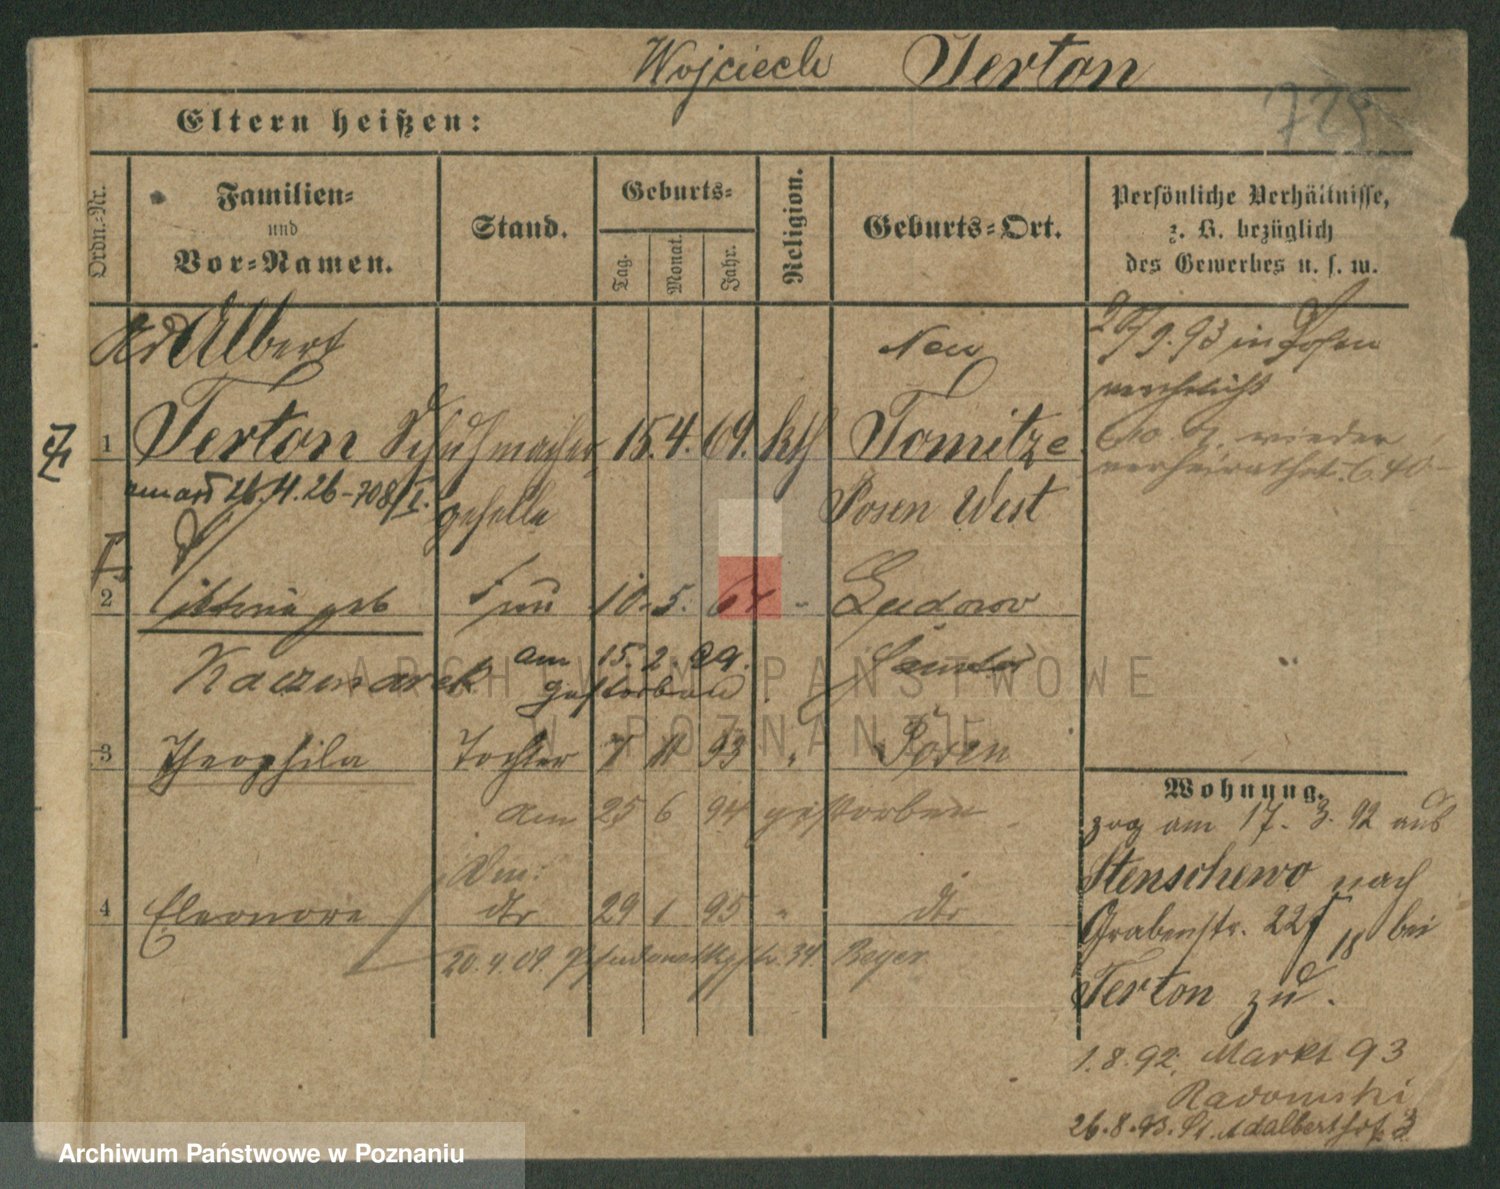 Wojciech Terton
729
Eltern heißen:
Ordn.-Nr.
Familien-
und
Vor-Namen.
Stand.
Geburts-
Tag.
Monat.
Jahr.
Religion.
Geburts-Ort.
Persönliche Verhältnisse,
z. B. bezüglich
des Gewerbes u. s. w.
Ad Albert
Neu
20/9.93 in Posen
verehelicht
1 Terton Schuhmacher 15. 4. 69. kth Tomitze
wieder
verheirathet.
26.4.26-708/I.
geselle
Posen West
2 Viktoria geb Frau 10. 5. 67 "
Kaczmarek am 15. 2. 09. Samter
gestorben
3 Theophila Tochter 7 11 93 " Posen
am 25 6 94 gestorben
Wohnung.
zog am 17. 3. 92 aus
4 Eleonore dto 29 1 95 " dto
Stenschewo nach
Grabenstr. 22 / 18 bei
20.4.09 34 Beyer
Terton zu.
1.8.92. Markt 93
Radomski
26.8.93. St. Adalbertstr. 3
ARCHIWUM PAŃSTWOWE
W POZNANIU
Archiwum Państwowe w Poznaniu